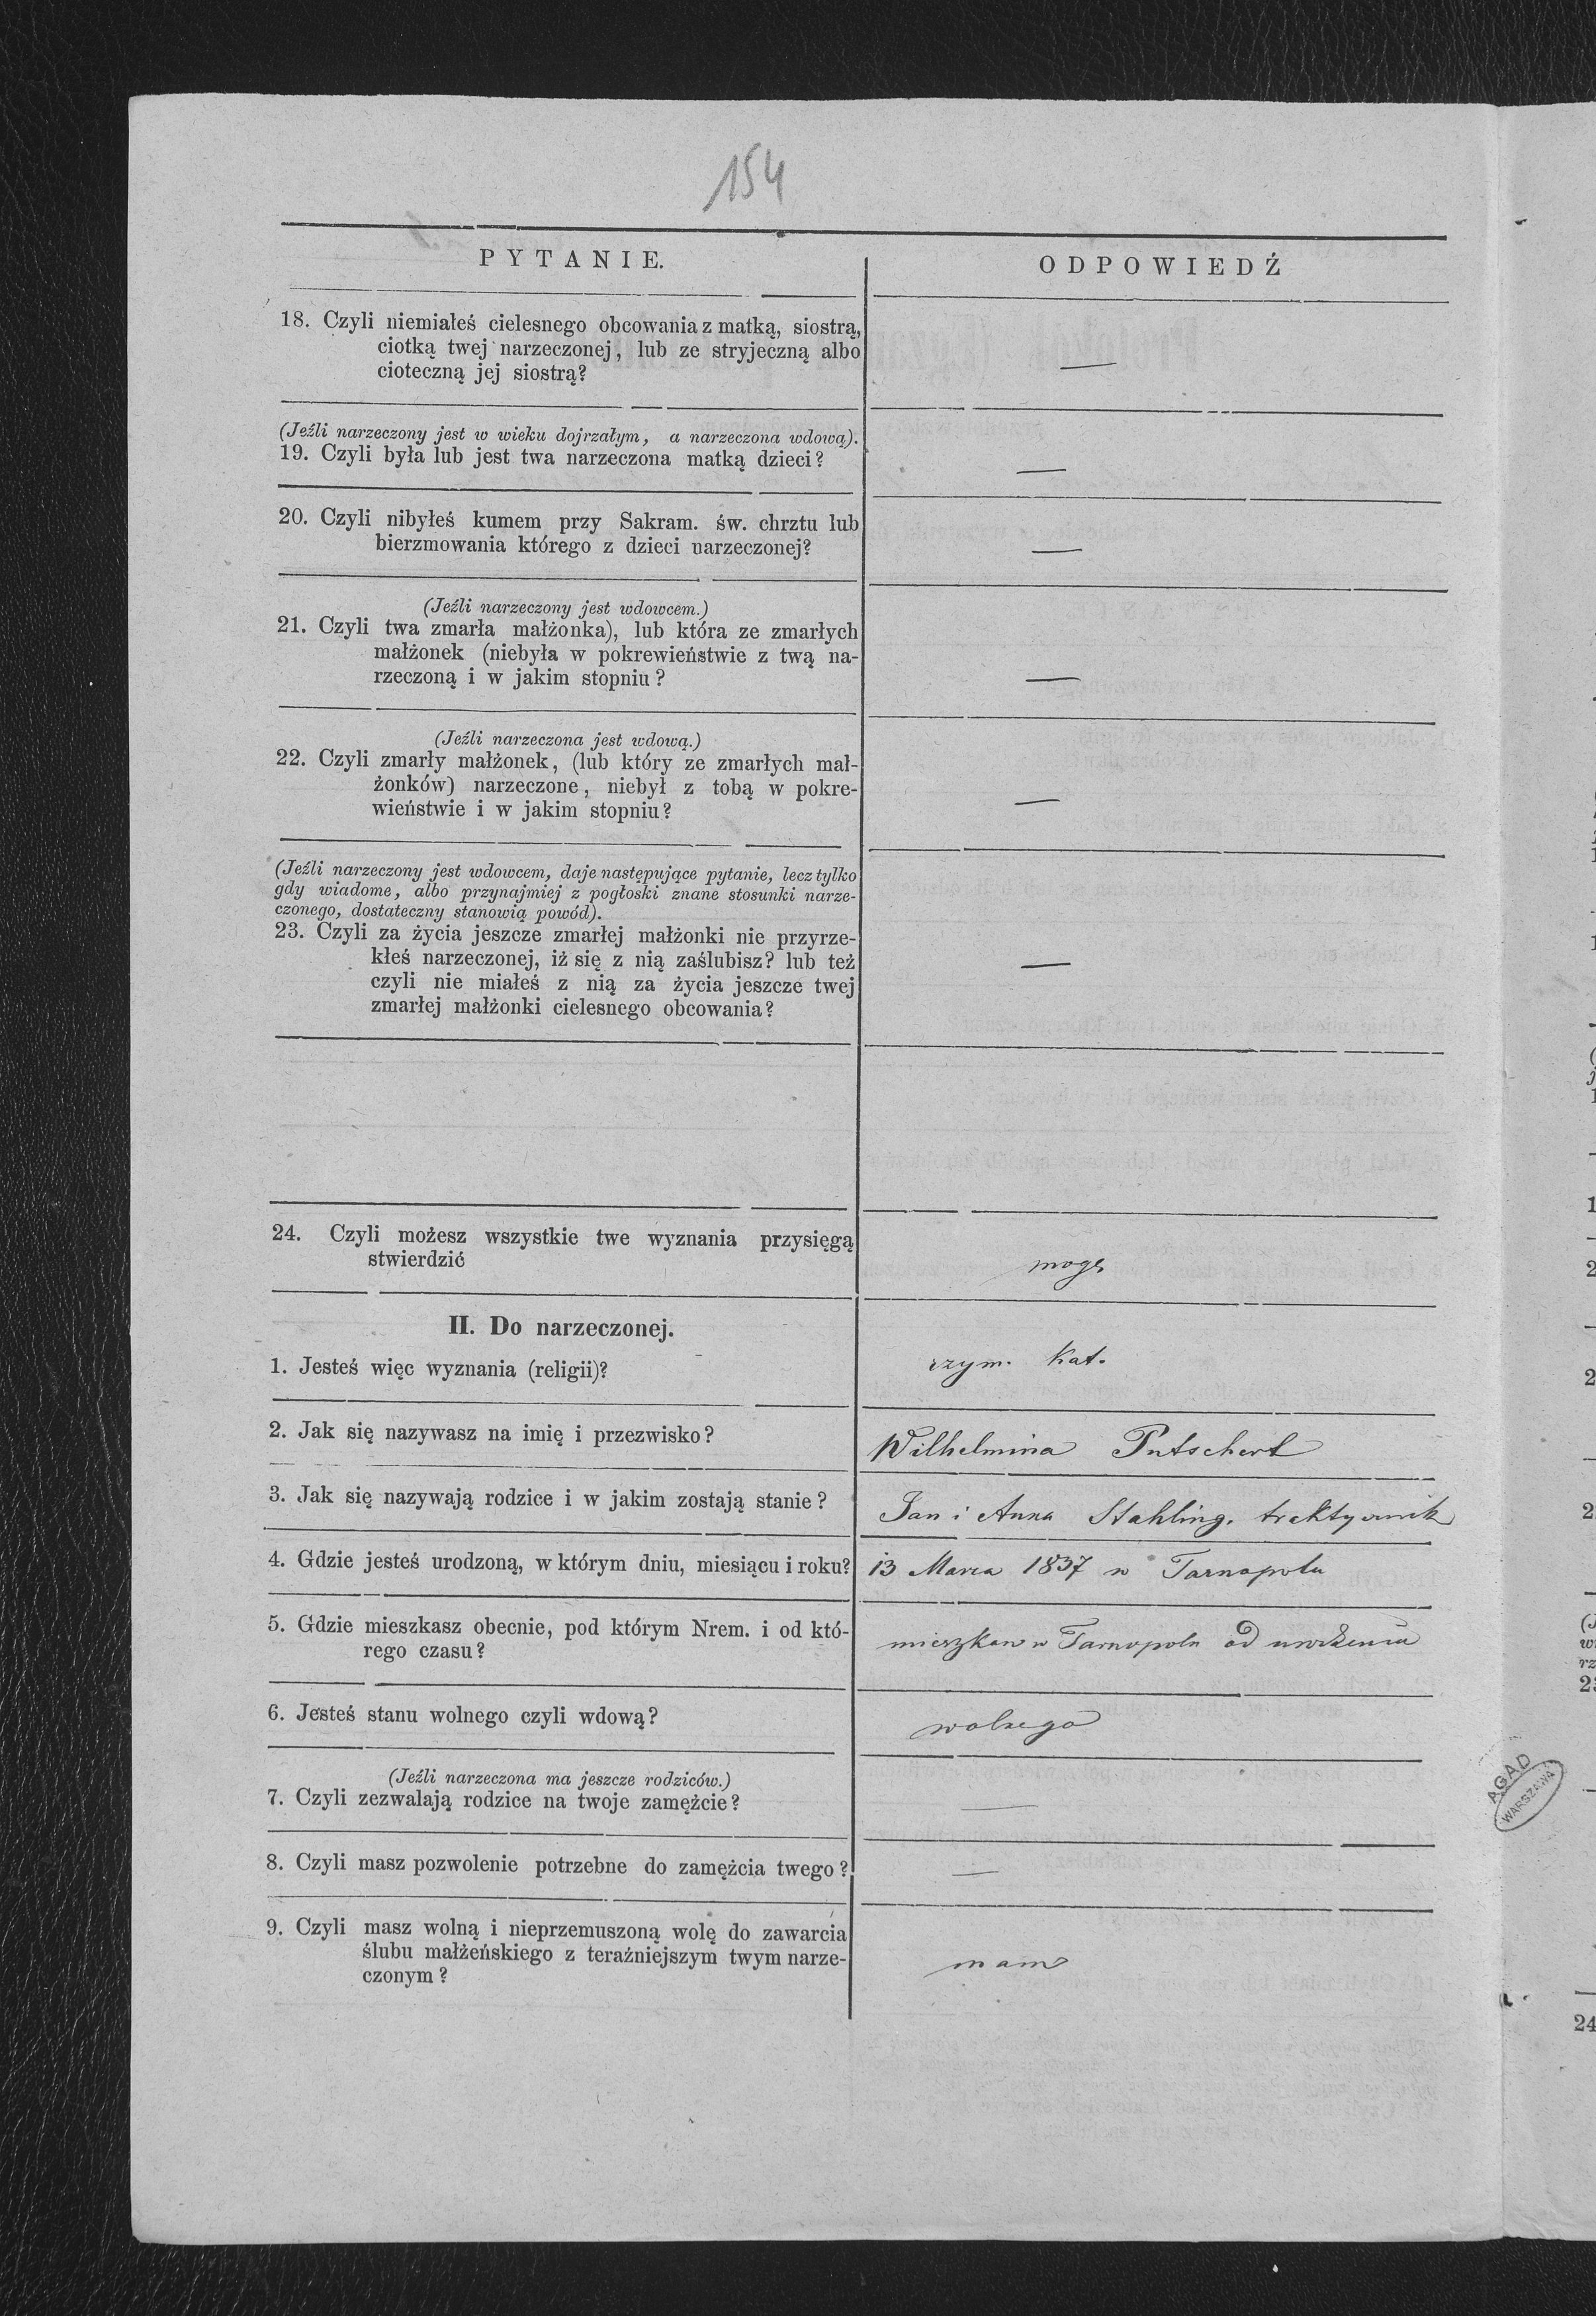 154
PYTANIE.
ODPOWIEDŹ
18. Czyli niemiałeś cielesnego obcowania z matką, siostrą,
ciotką twej narzeczonej, lub ze stryjeczną albo
cioteczną jej siostrą?
—
(Jeźli narzeczony jest w wieku dojrzałym, a narzeczona wdową).
19. Czyli była lub jest twa narzeczona matką dzieci?
—
20. Czyli nibyłeś kumem przy Sakram. św. chrztu lub
bierzmowania którego z dzieci narzeczonej?
—
(Jeźli narzeczony jest wdowcem.)
21. Czyli twa zmarła małżonka), lub która ze zmarłych
małżonek (niebyła w pokrewieństwie z twą na-
rzeczoną i w jakim stopniu?
—
(Jeźli narzeczona jest wdową.)
22. Czyli zmarły małżonek, (lub który ze zmarłych mał-
żonków) narzeczone, niebył z tobą w pokre-
wieństwie i w jakim stopniu?
—
(Jeźli narzeczony jest wdowcem, daje następujące pytanie, lecz tylko
gdy wiadome, albo przynajmiej z pogłoski znane stosunki narze-
czonego, dostateczny stanowią powód).
23. Czyli za życia jeszcze zmarłej małżonki nie przyrze-
kłeś narzeczonej, iż się z nią zaślubisz? lub też
czyli nie miałeś z nią za życia jeszcze twej
zmarłej małżonki cielesnego obcowania?
—
24. Czyli możesz wszystkie twe wyznania przysięgą
stwierdzić
mogę
II. Do narzeczonej.
1. Jesteś więc wyznania (religii)?
rzym. kat.
2. Jak się nazywasz na imię i przezwisko?
Wilhelmina Putschert
3. Jak się nazywają rodzice i w jakim zostają stanie?
Jan i Anna Stahling. traktyernik
4. Gdzie jesteś urodzoną, w którym dniu, miesiącu i roku?
13 Marca 1837 w Tarnopolu
5. Gdzie mieszkasz obecnie, pod którym Nrem. i od któ-
rego czasu?
mieszkam w Tarnopolu od urodzenia
6. Jesteś stanu wolnego czyli wdową?
wolnego
(Jeźli narzeczona ma jeszcze rodziców.)
7. Czyli zezwalają rodzice na twoje zamężcie?
—
8. Czyli masz pozwolenie potrzebne do zamężcia twego?
—
9. Czyli masz wolną i nieprzemuszoną wolę do zawarcia
ślubu małżeńskiego z teraźniejszym twym narze-
czonym?
mam
AGAD
WARSZAWA
24